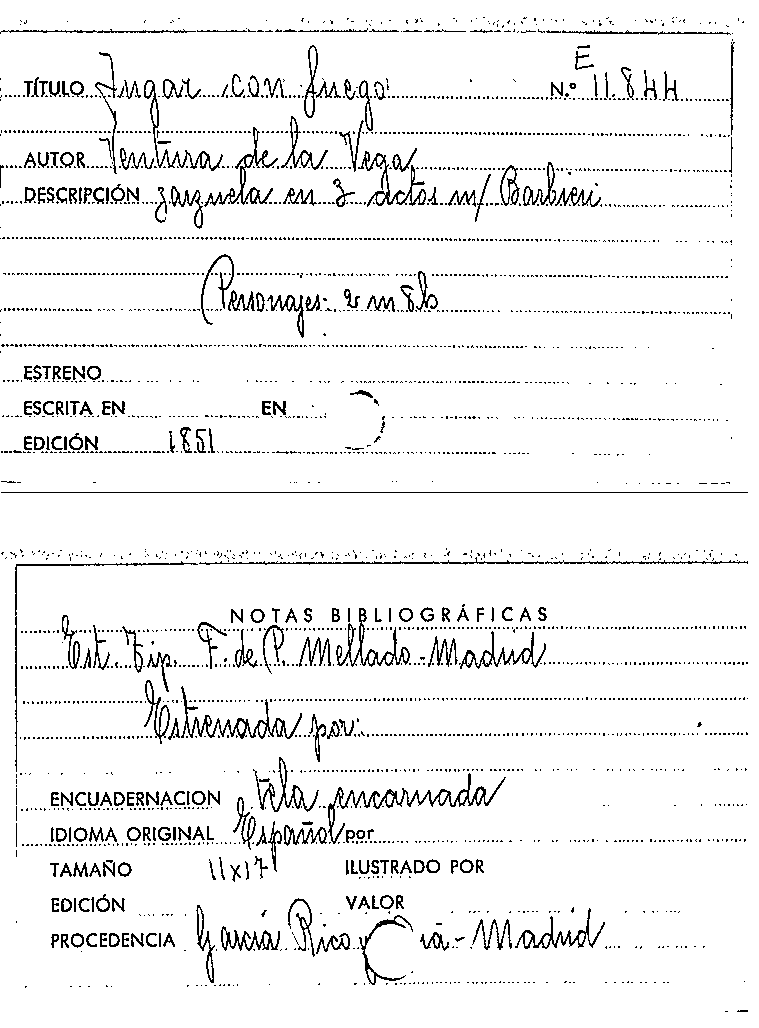 E
TÍTULO Jugar con fuego N.º 11.844
AUTOR Ventura de la Vega
DESCRIPCIÓN zarzuela en 3 actos m/ Barbieri
Personajes: 2 m 8 h
ESTRENO
ESCRITA EN EN
EDICIÓN 1851
NOTAS BIBLIOGRÁFICAS
Est. Tip. F. de P. Mellado - Madrid
Estrenada por:
ENCUADERNACION tela encarnada
IDIOMA ORIGINAL Español por
TAMAÑO 11x17 ILUSTRADO POR
EDICIÓN VALOR
PROCEDENCIA García Rico y Cía - Madrid